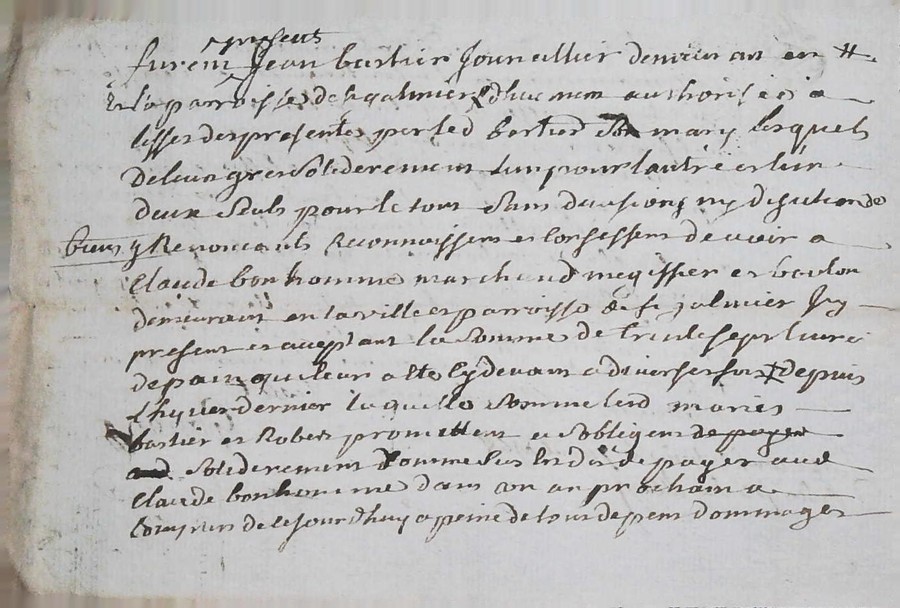 present
furent Jean bartier Journallier demeurant en #
et la parroisse de st galmier d'huemen authorisée a
l'effet des presentes par led bartier son mary lesquels
de leur gré soliderement l'un pour l'autre et l'un
deux seuls pour le tout sans division ny discution de
biens y Renoncants Reconnoissent et Confessent devoir a
Claude bonhomme marchand megissier et
demeurant en la ville et parroisse de st galmier Icy
present et acceptant la somme de trente sept livres
de pain qui leur a esté cydevant a diverses fois depuis
l'hyver dernier laquelle somme lesd mariés
bartier et Robert promettent et s'obligent de payer
solideremen comme sus est dit de payer aud
Claude bonhomme dans un an prochain a
Compter de cejourd'huy a peine de tous depens dommages